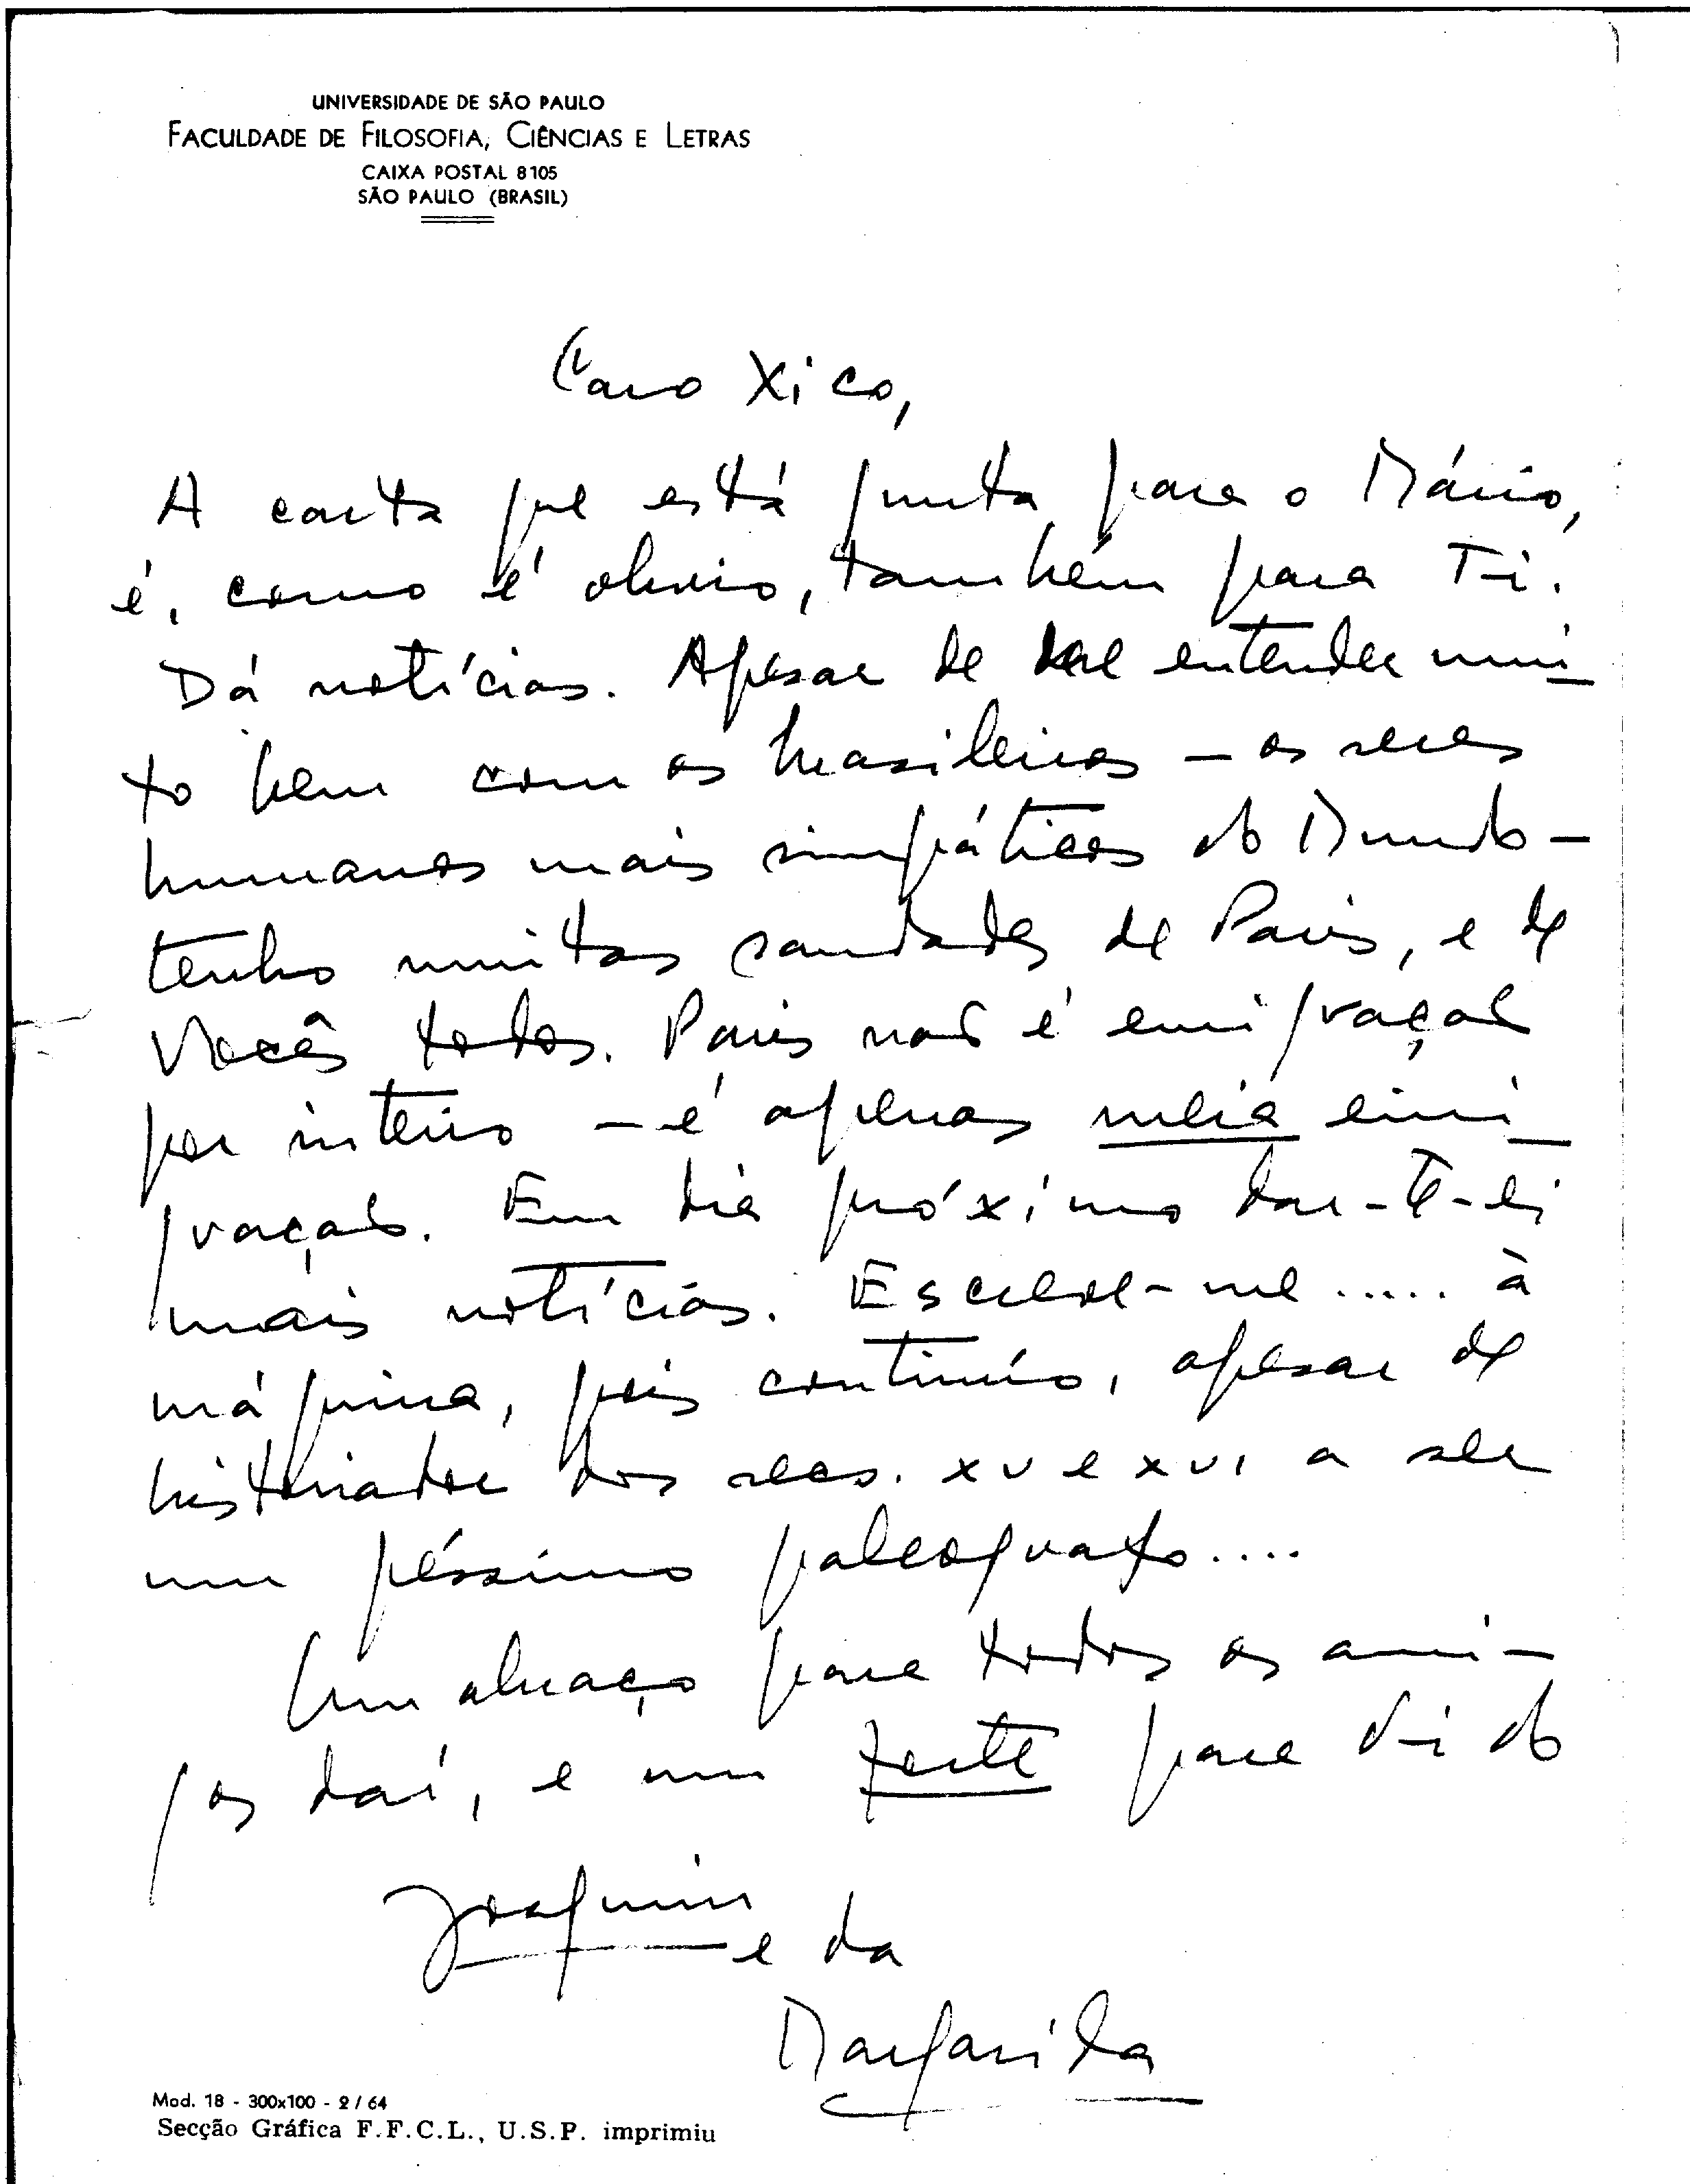 UNIVERSIDADE DE SÃO PAULO
FACULDADE DE FILOSOFIA, CIÊNCIAS E LETRAS
CAIXA POSTAL 8105
SÃO PAULO (BRASIL)
Caro Xico,
A carta que está junta, para o Mário,
é, como é obvio, também para Ti.
Dá notícias. Apesar de me entender mui-
to bem com os brasileiros – os seres
humanos mais simpáticos do Mundo –
tenho muitas saudades de Paris, e de
Vocês todos. Paris não é emigração
por inteiro – é apenas meia emi-
gração. Em dia próximo dar-te-ei
mais notícias. Escreve-me ..... à
máquina, pois continúo, apesar de
historiador dos secs. XV e XVI a ser
um péssimo paleografo....
Um abraço para todos os ami-
gos daí, e um forte para Ti do
Joaquim
e da
Margarida
Mod. 18 - 300x100 - 2 / 64
Secção Gráfica F.F.C.L., U.S.P. imprimiu